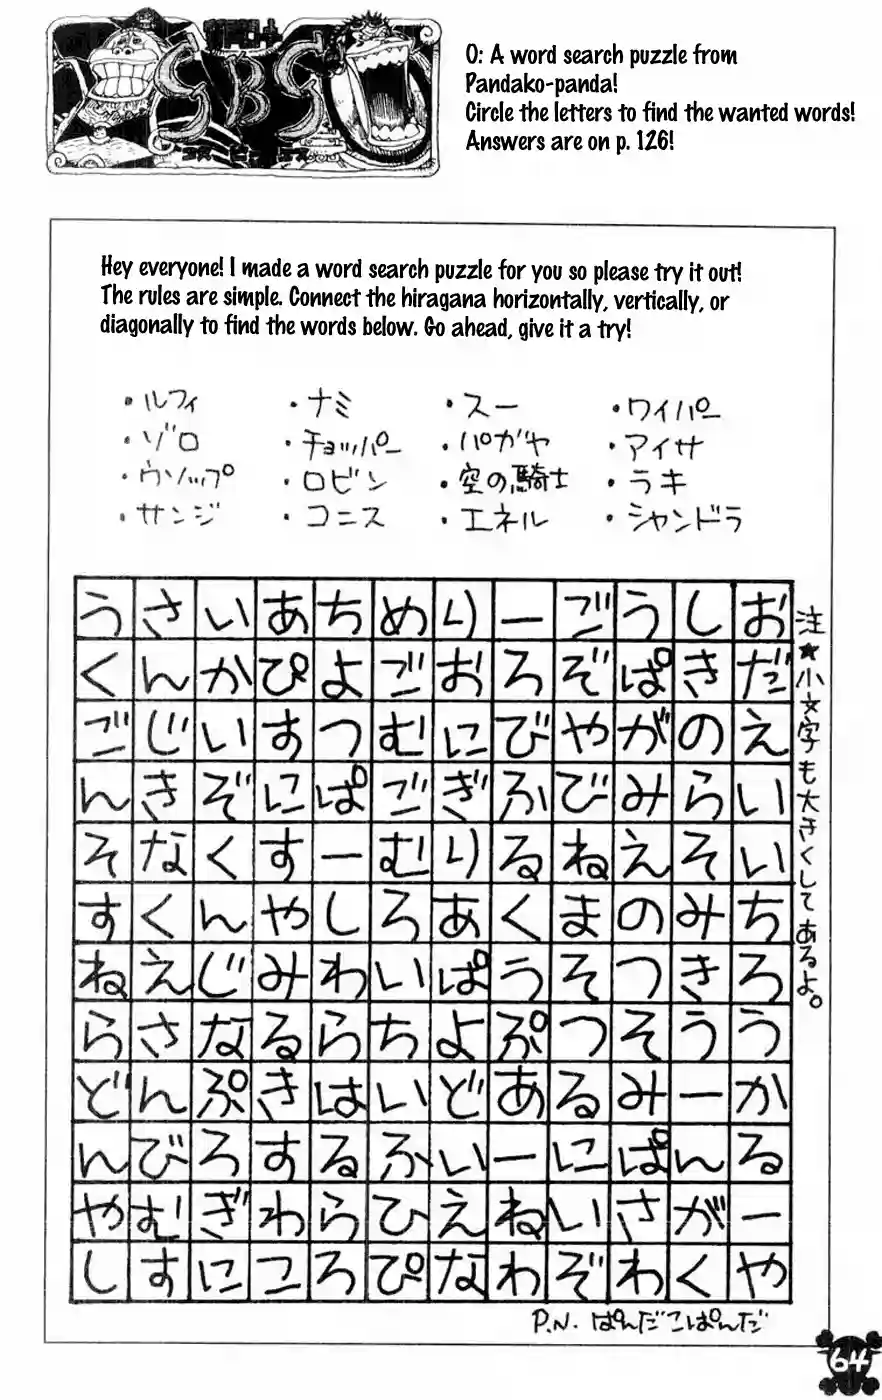 SBS
O: A word search puzzle from
Pandako-panda!
Circle the letters to find the wanted words!
Answers are on p. 126!
Hey everyone! I made a word search puzzle for you so please try it out!
The rules are simple. Connect the hiragana horizontally, vertically, or
diagonally to find the words below. Go ahead, give it a try!
・ルフィ ・ナミ ・スー ・ワイパー
・ゾロ ・チョッパー ・パガヤ ・アイサ
・ウソップ ・ロビン ・空の騎士 ・ラキ
・サンジ ・コニス ・エネル ・シャンドラ
う さ い あ ち め り ー ご う し お
く ん か ぴ よ ご お ろ ぞ ぱ き だ
ご じ い す つ む に び や が の え
ん き ぞ に ぱ ご ぎ ふ び み ら い
そ な く す ー む り る ね え そ い
す く ん や し ろ あ く ま の み ち
ね え じ み わ い ぱ う そ つ き ろ
ら さ な る ら ち よ ぷ つ そ う う
ど ん ぷ き は い ど あ る み ー か
ん び ろ す る ふ い ー に ぱ ん る
や む ぎ わ ら ひ え ね い さ が ー
し す に こ ろ ぴ な わ ぞ わ く や
注★小文字も大きくしてあるよ。
P.N. ぱんだこぱんだ
64